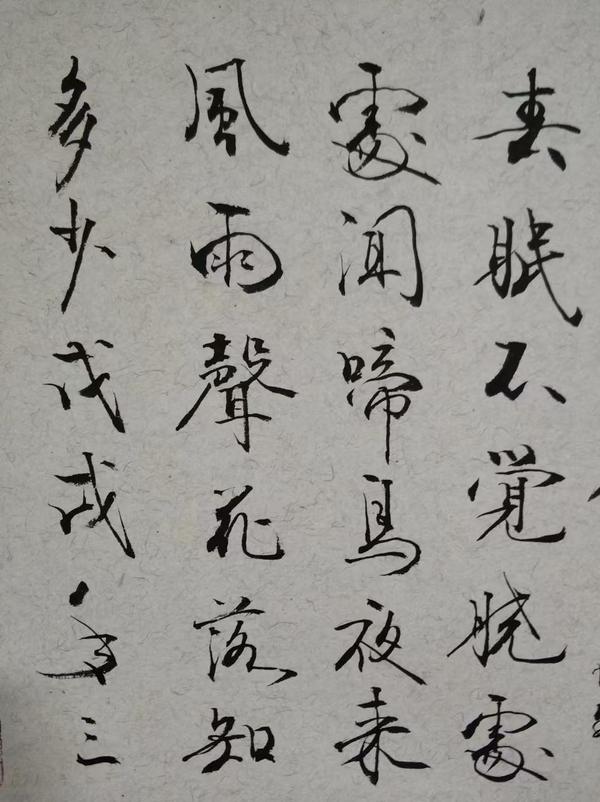 春眠不覺曉處
處聞啼鳥夜来
風雨聲花落知
多少戊戌年三